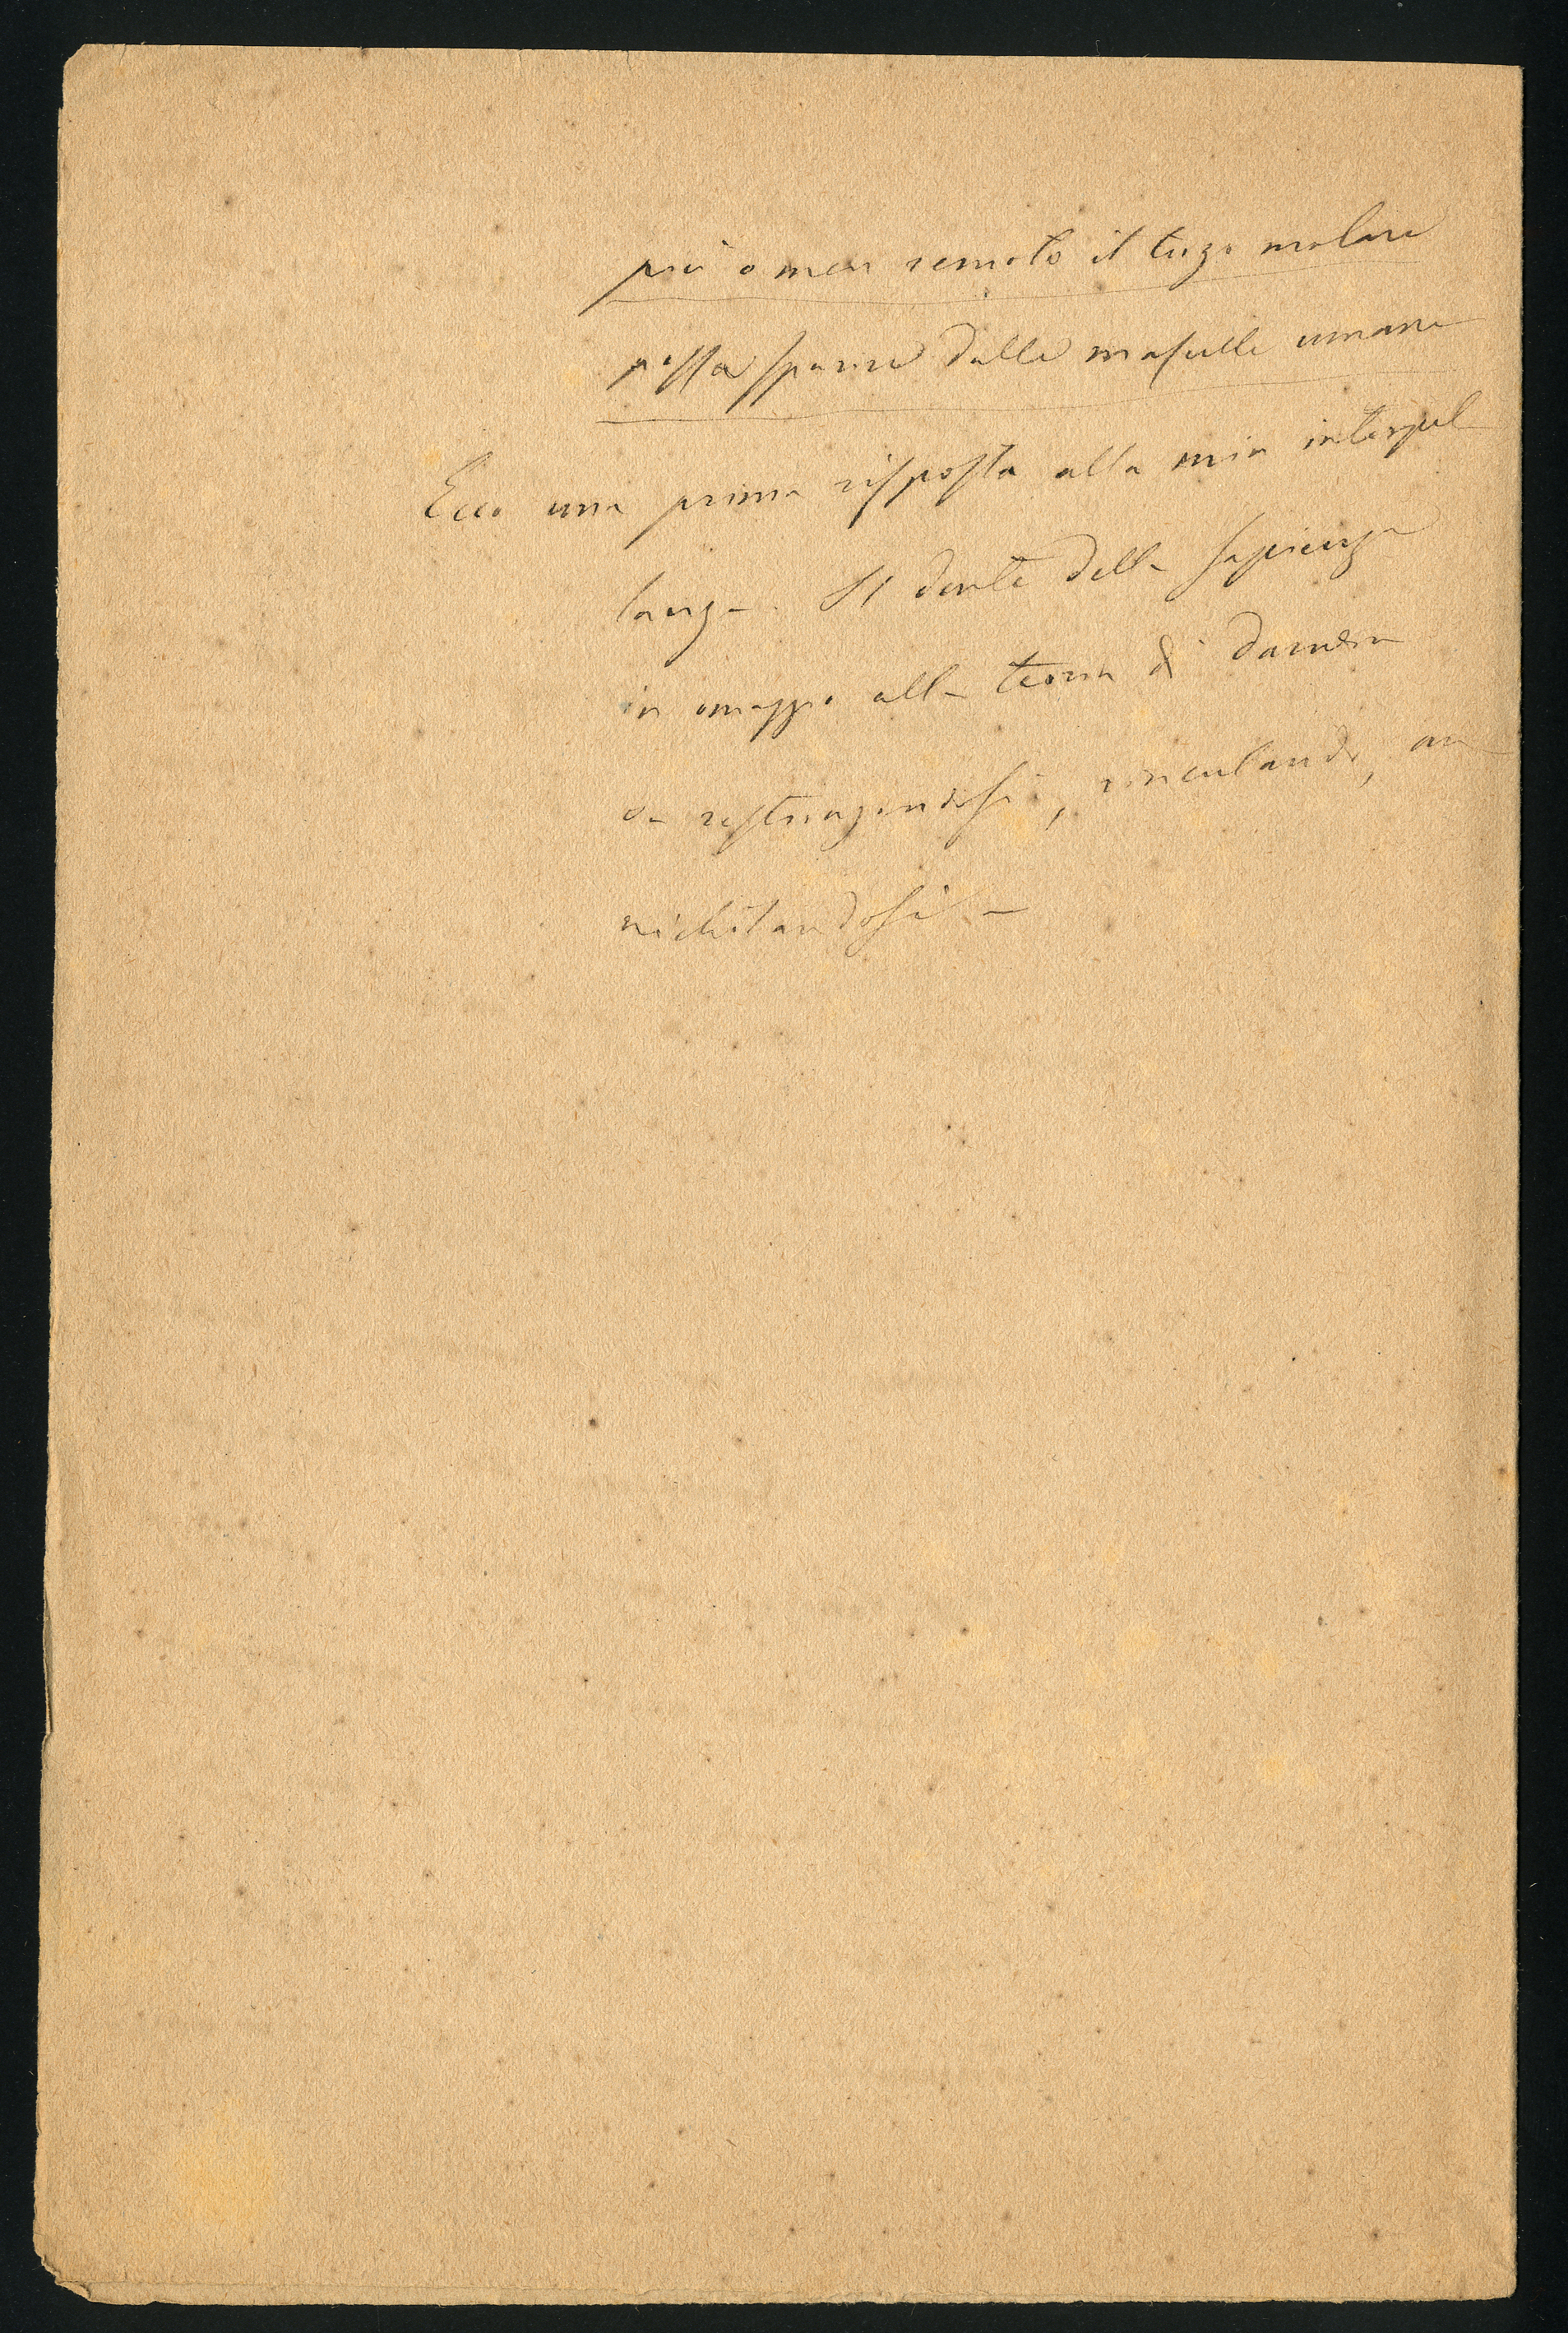 più o men remoto il terzo molare
possa sparire dalle mascelle umane
Ecco una prima risposta alla mia interpel
lanza. Il dente della sapienza
in omaggio alla teoria di Darwin
va restringendosi, rinculando, an
nichilandosi -